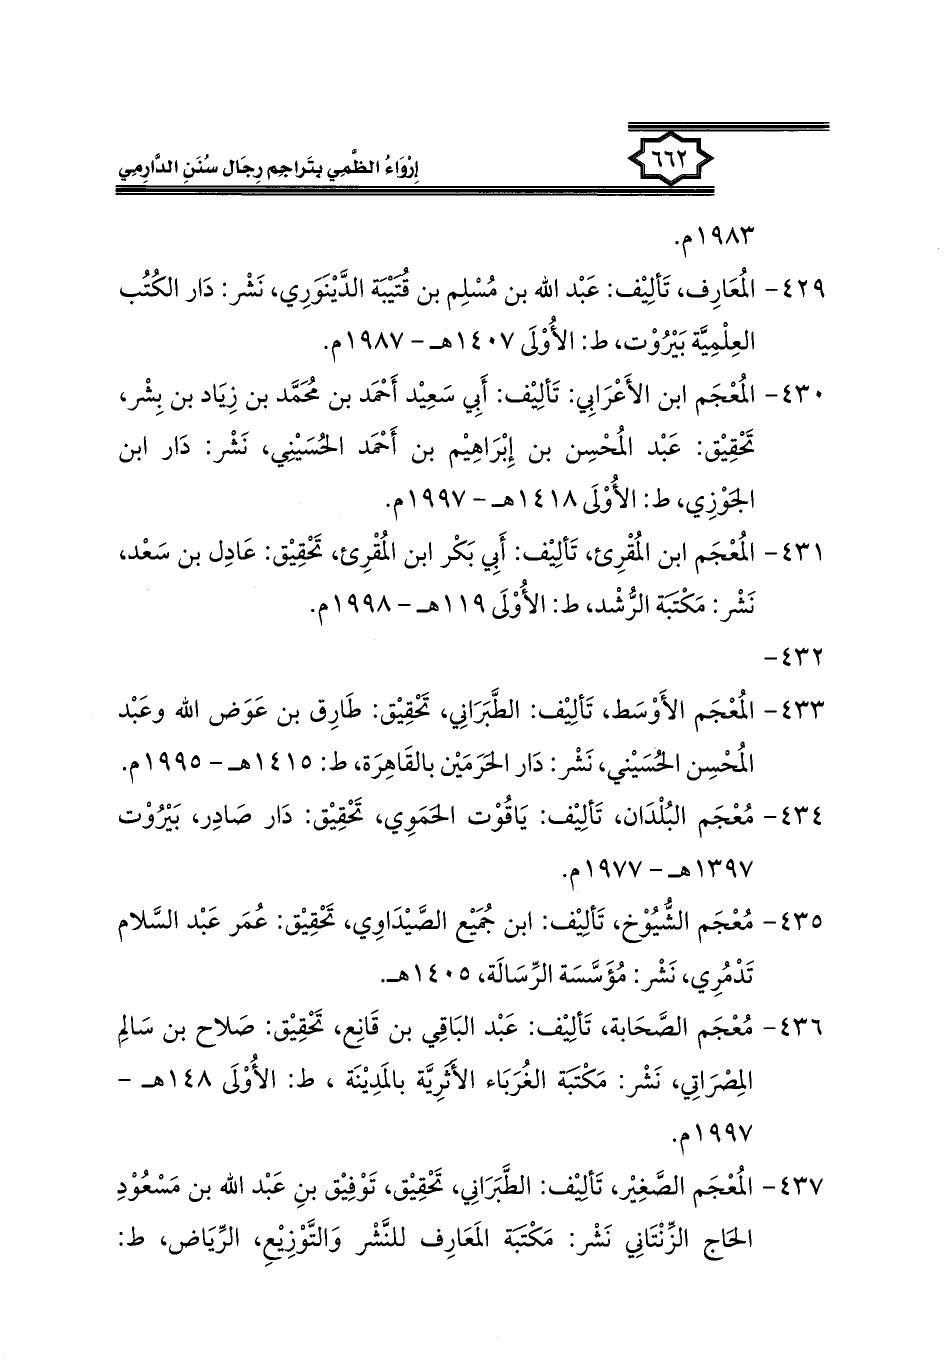 ٦٦٢
إرْوَاءُ الظَّمِي بتَراجم رِجَال سُنَنِ الدَّارِمِي
١٩٨٣م.
٤٢٩- المُعَارِف، تَألِيْف: عَبْد الله بن مُسْلِم بن قُتَيْبَة الدَّيْنَوَرِي، نَشْر: دَار الكُتُب
العِلْمِيَّة بَيْرُوْت، ط: الأُوْلَى ١٤٠٧هـ - ١٩٨٧م.
٤٣٠- المُعْجَم ابن الأَعْرَابي: تَألِيْف: أَبي سَعِيْد أَحْمَد بن مُحَمَّد بن زِيَاد بن بِشْر،
تَحْقِيْق: عَبْد المُحْسِن بن إِبْرَاهِيْم بن أَحْمَد الحُسَيْنِي، نَشْر: دَار ابن
الجَوْزِي، ط: الأُوْلَى ١٤١٨هـ - ١٩٩٧م.
٤٣١- المُعْجَم ابن المُقْرِئ، تَألِيْف: أَبي بَكْر ابن المُقْرِئ، تَحْقِيْق: عَادِل بن سَعْد،
نَشْر: مَكْتَبَة الرُّشْد، ط: الأُوْلَى ١١٩هـ - ١٩٩٨م.
٤٣٢-
٤٣٣- المُعْجَم الأَوْسَط، تَألِيْف: الطَّبَرَاني، تَحْقِيْق: طَارِق بن عَوَض الله وعَبْد
المُحْسِن الحُسَيْنِي، نَشْر: دَار الحَرَمَيْن بالقَاهِرَة، ط: ١٤١٥هـ - ١٩٩٥م.
٤٣٤- مُعْجَم البُلْدَان، تَألِيْف: يَاقُوْت الحَمَوِي، تَحْقِيْق: دَار صَادِر، بَيْرُوْت
١٣٩٧هـ - ١٩٧٧م.
٤٣٥- مُعْجَم الشُّيُوْخ، تَألِيْف: ابن جُمَيْع الصَّيْدَاوِي، تَحْقِيْق: عُمَر عَبْد السَّلام
تَدْمُرِي، نَشْر: مُؤَسَّسَة الرِّسَالَة، ١٤٠٥هـ.
٤٣٦- مُعْجَم الصَّحَابة، تَألِيْف: عَبْد البَاقِي بن قَانِع، تَحْقِيْق: صَلَاح بن سَالِم
المِصْرَاتي، نَشْر: مَكْتَبَة الغُرَبَاء الأَثَرِيَّة بالمَدِيْنَة ، ط: الأُوْلَى ١٤٨هـ -
١٩٩٧م.
٤٣٧- المُعْجَم الصَّغِيْر، تَألِيْف: الطَّبَرَاني، تَحْقِيْق، تَوْفِيْق بنِ عَبْد الله بن مَسْعُوْدِ
الحَاج الزِّنْتَاني نَشْر: مَكْتَبَة المَعَارِف للنَّشْر وَالتَّوْزِيْعِ، الرِّيَاض، ط: